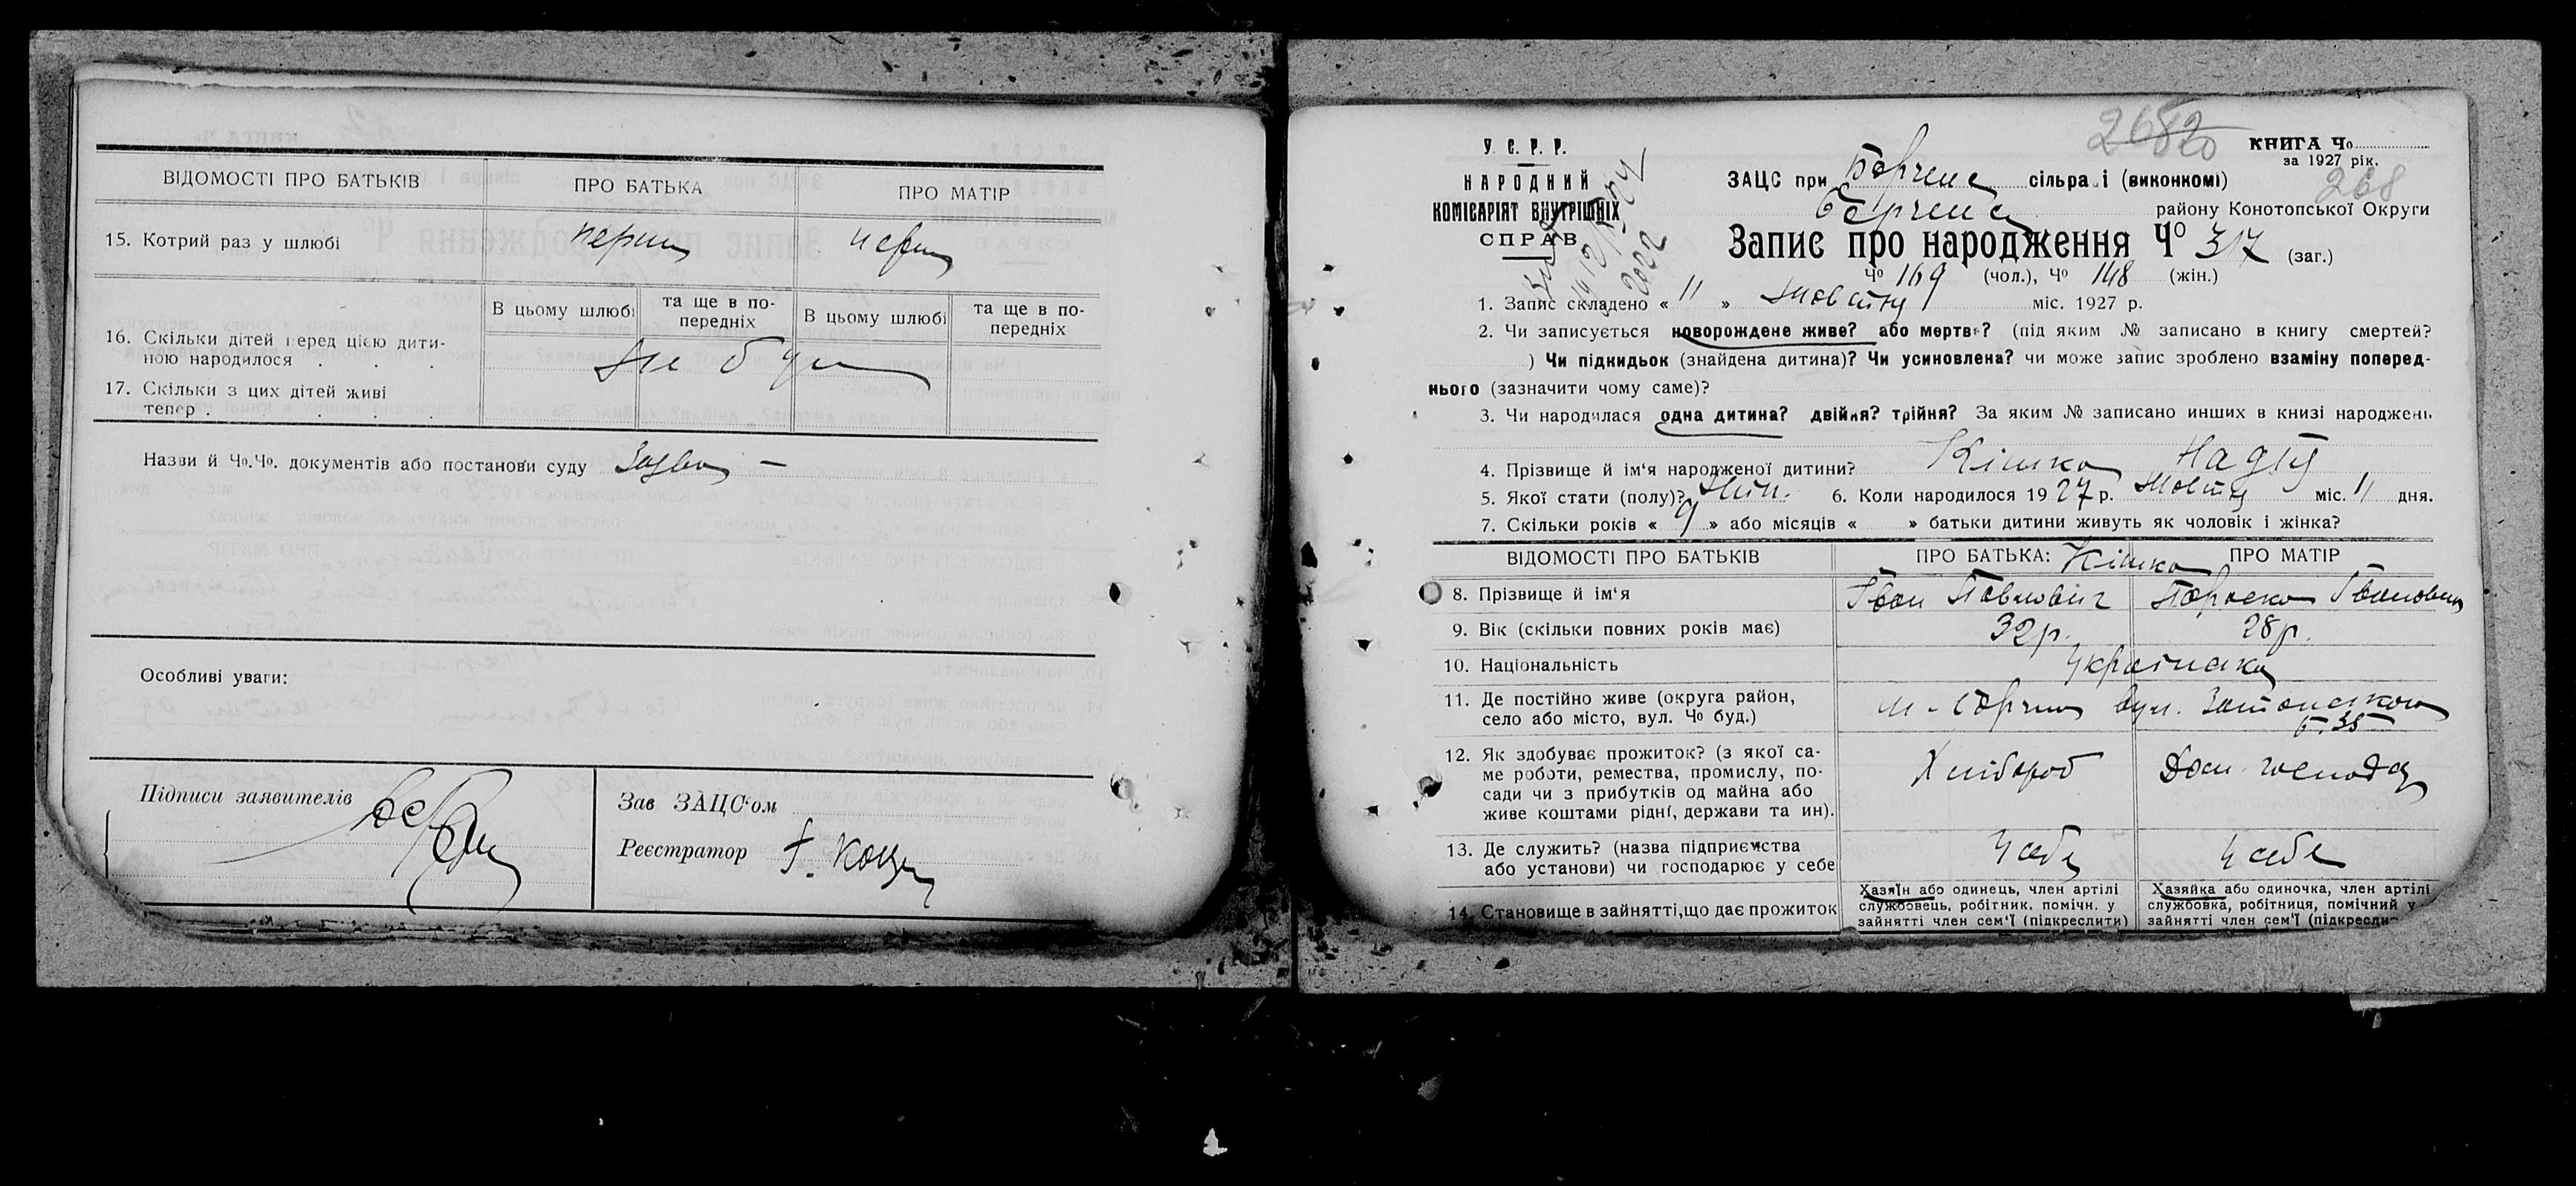 ВІДОМОСТІ ПРО БАТЬКІВ
ПРО БАТЬКА
ПРО МАТІР
15. Котрий раз у шлюбі
перш
перш
В цьому шлюбі
та ще в по-
передніх
В цьому шлюбі
та ще в по-
передніх
16. Скільки дітей перед цією дити-
ною народилося . . .
17. Скільки з цих дітей живі
тепер . . .
Не бул
Назви й Чо.Чо. документів або постанови суду
Особливі уваги:
Підписи заявителів
Зав ЗАЦС'ом
Реєстратор
У. С. Р. Р.
НАРОДНИЙ
КОМІСАРІЯТ ВНУТРІШНІХ
СПРАВ
2682
КНИГА Чо
за 1927 рік.
268
ЗАЦС при Борзенс сільраді (виконкомі)
Борзенс району Конотопської Округи
Запис про народження Чо 317 (заг.)
Чо 169 (чол.), Чо 148 (жін.)
1. Запис складено « 11 » Жовтня міс. 1927 р.
2. Чи записується новорождене живе? або мертве? (під яким № записано в книгу смертей?
) Чи підкидьок (знайдена дитина)? Чи усиновлена? чи може запис зроблено взаміну поперед-
нього (зазначити чому саме)?
3. Чи народилася одна дитина? двійня? трійня? За яким № записано инших в книзі народжень
4. Прізвище й ім'я народженої дитини? Кішка Надія
5. Якої стати (полу)? Жін. 6. Коли народилося 1927 р. Жовтня міс. 11 дня.
7. Скільки років « 9 » або місяців « » батьки дитини живуть як чоловік і жінка?
ВІДОМОСТІ ПРО БАТЬКІВ
ПРО БАТЬКА: Кішка ПРО МАТІР
8. Прізвище й ім'я
Іван Павлович
Параска Івановна
9. Вік (скільки повних років має)
32 р.
28 р.
10. Національність
Українська
11. Де постійно живе (округа район,
село або місто, вул. Чо буд.)
м. Борзна вул.
б. 35
12. Як здобуває прожиток? (з якої са-
ме роботи, ремества, промислу, по-
сади чи з прибутків од майна або
живе коштами рідні, держави та ин).
Хлібороб
Дом. господар
13. Де служить? (назва підприємства
або установи) чи господарює у себе
У себе
У себе
14. Становище в зайнятті,що дає прожиток
Хазяїн або одинець, член артілі
службовець, робітник. помічн. у
зайнятті член сем'ї (підкреслити)
Хазяйка або одиночка, член артілі
службовка, робітниця, помічний у
зайнятті член сем'ї (підкресли